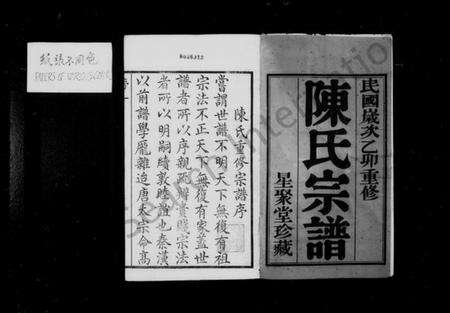 民國歲次乙卯重修
陳氏宗譜
星聚堂珍藏
陳氏重修宗譜序
嘗謂世譜不明天下無復有祖
宗法不正天下無復有家蓋世
譜者所以序親疏
貴賤宗法
者所以明嗣續敦睦誼也秦漢
以前譜學厖雜迨唐太宗命高
紙張不同色
PAPERS OF